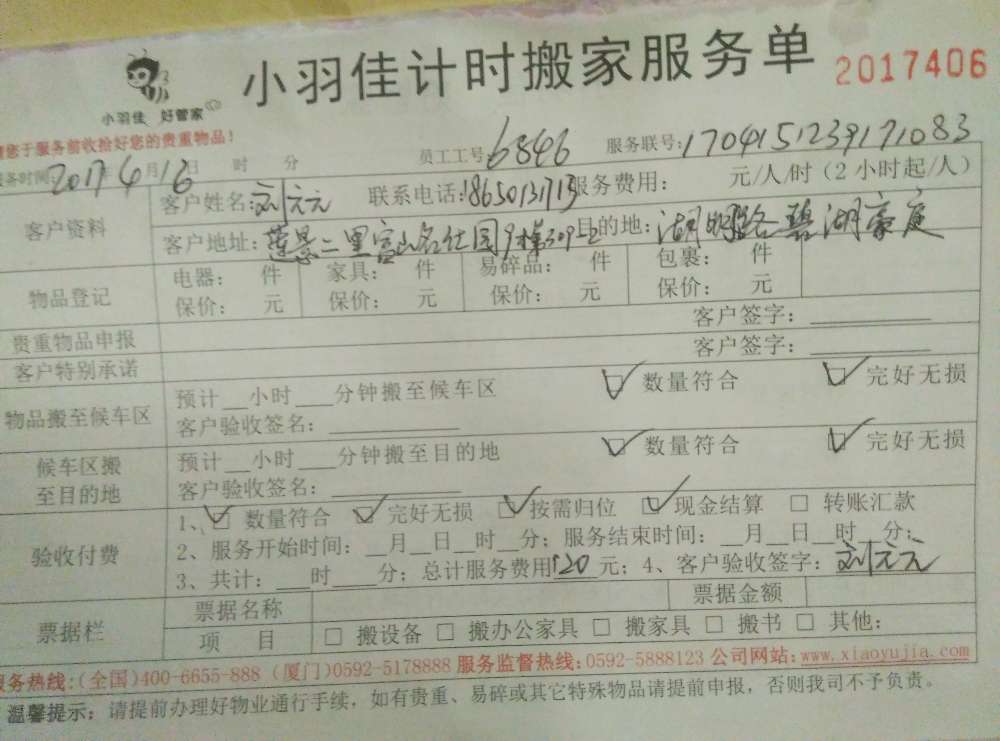 小羽佳计时搬家服务单 2017406
小羽佳 好管家
您于服务前收拾好您的贵重物品!
员工工号: 6846 服务联号: 1704151239171083
务时间 2017 4 月 16 日 时 分
客户资料 客户姓名: 刘元元 联系电话: 服务费用: 元/人/时 (2小时起/人)
客户地址: 莲景二里富山名仕园9栋 目的地: 湖明路碧湖豪庭
物品登记 电器: 件 家具: 件 易碎品: 件 包裹: 件
保价: 元 保价: 元 保价: 元 保价: 元
贵重物品申报 客户签字: ________
客户特别承诺 客户签字: ________
物品搬至候车区 预计__小时___分钟搬至候车区 ☑ 数量符合 ☑ 完好无损
客户验收签名: ________
候车区搬至目的地 预计__小时___分钟搬至目的地 ☑ 数量符合 ☑ 完好无损
客户验收签名: ________
验收付费 1、☑ 数量符合 ☑ 完好无损 ☑ 按需归位 ☑ 现金结算 □ 转账汇款
2、服务开始时间: __月__日__时__分; 服务结束时间: __月__日__时__分;
3、共计: ___时___分; 总计服务费用 120 元; 4、客户验收签字: 刘元元
票据栏 票据名称 票据金额
项 目 □ 搬设备 □ 搬办公家具 □ 搬家具 □ 搬书 □ 其他:
务热线: (全国)400-6655-888 (厦门)0592-5178888 服务监督热线: 0592-5888123 公司网站: www.xiaoyujia.com
温馨提示: 请提前办理好物业通行手续, 如有贵重、易碎或其它特殊物品请提前申报, 否则我司不予负责。